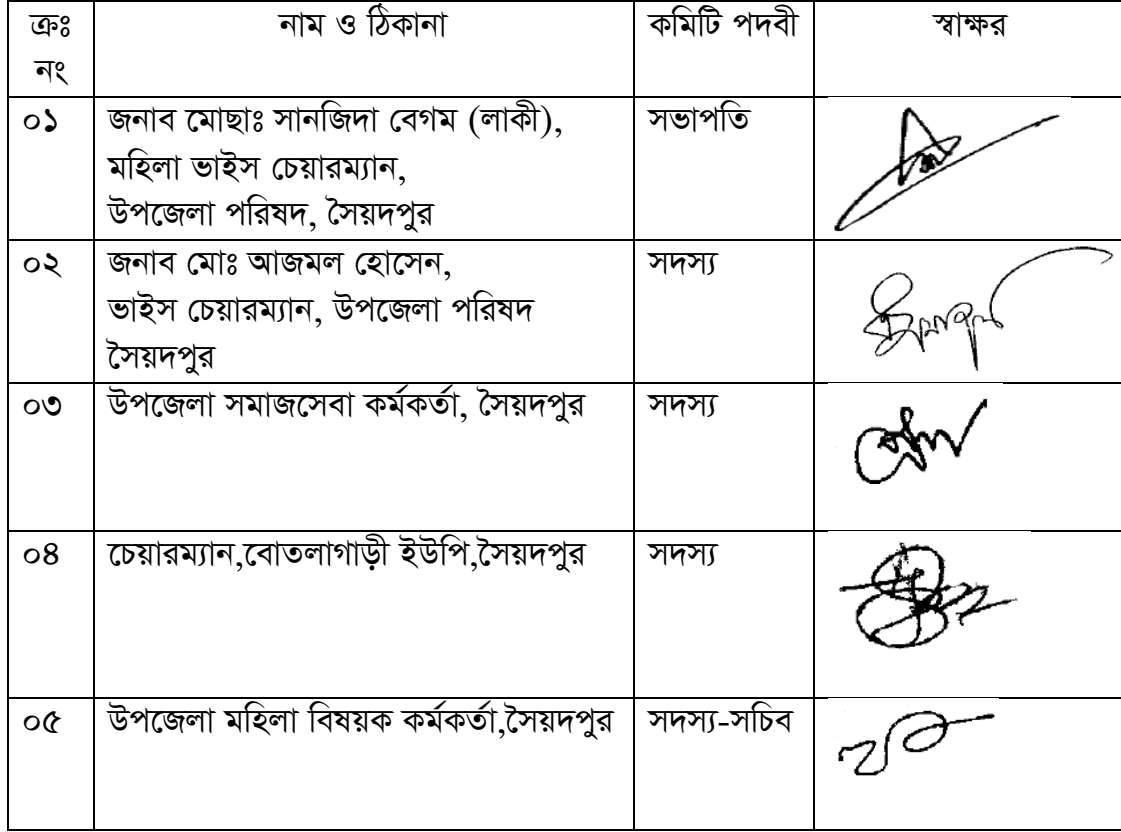 ক্রঃ নং	নাম ও ঠিকানা	কমিটি পদবী	স্বাক্ষর
০১	জনাব মোছাঃ সানজিদা বেগম (লাকী),	সভাপতি
মহিলা ভাইস চেয়ারম্যান,
উপজেলা পরিষদ, সৈয়দপুর
০২	জনাব মোঃ আজমল হোসেন,	সদস্য
ভাইস চেয়ারম্যান, উপজেলা পরিষদ
সৈয়দপুর
০৩	উপজেলা সমাজসেবা কর্মকর্তা, সৈয়দপুর	সদস্য
০৪	চেয়ারম্যান,বোতলাগাড়ী ইউপি,সৈয়দপুর	সদস্য
০৫	উপজেলা মহিলা বিষয়ক কর্মকর্তা,সৈয়দপুর	সদস্য-সচিব